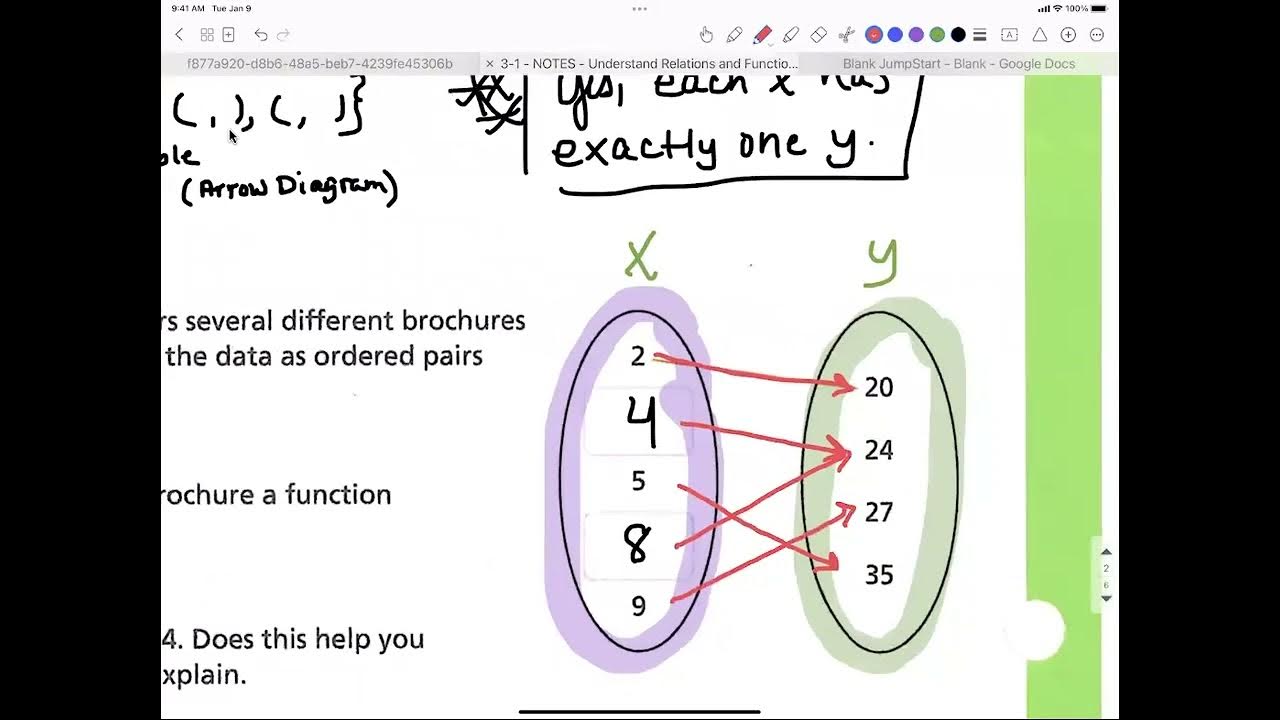 9:41 AM Tue Jan 9
100%
f877a920-d8b6-48a5-beb7-4239fe45306b
× 3-1 - NOTES - Understand Relations and Functio...
Blank JumpStart - Blank - Google Docs
( , ), ( , )}
(Arrow Diagram)
Yes, each x has
exactly one y.
x y
rs several different brochures
the data as ordered pairs
rochure a function
4. Does this help you
xplain.
2
4
5
8
9
20
24
27
35
2
6